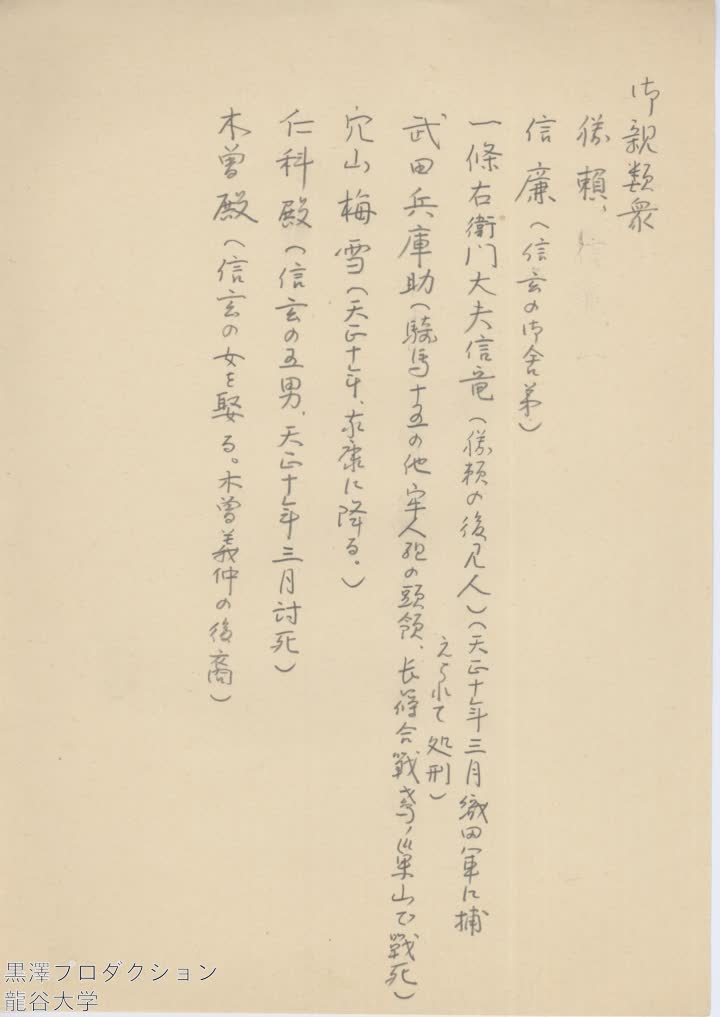 御親類衆
勝頼、
信廉（信玄の御舎弟）
一條右衛門大夫信竜（勝頼の後見人）（天正十年三月織田軍に捕
えられて処刑）
武田兵庫助（騎馬十五の他牢人組の頭領、長篠合戦鳶ノ巣山で戦死）
穴山梅雪（天正十年、家康に降る。）
仁科殿（信玄の五男、天正十年三月討死）
木曽殿（信玄の女を娶る。木曽義仲の後裔）
黒澤プロダクション
龍谷大学